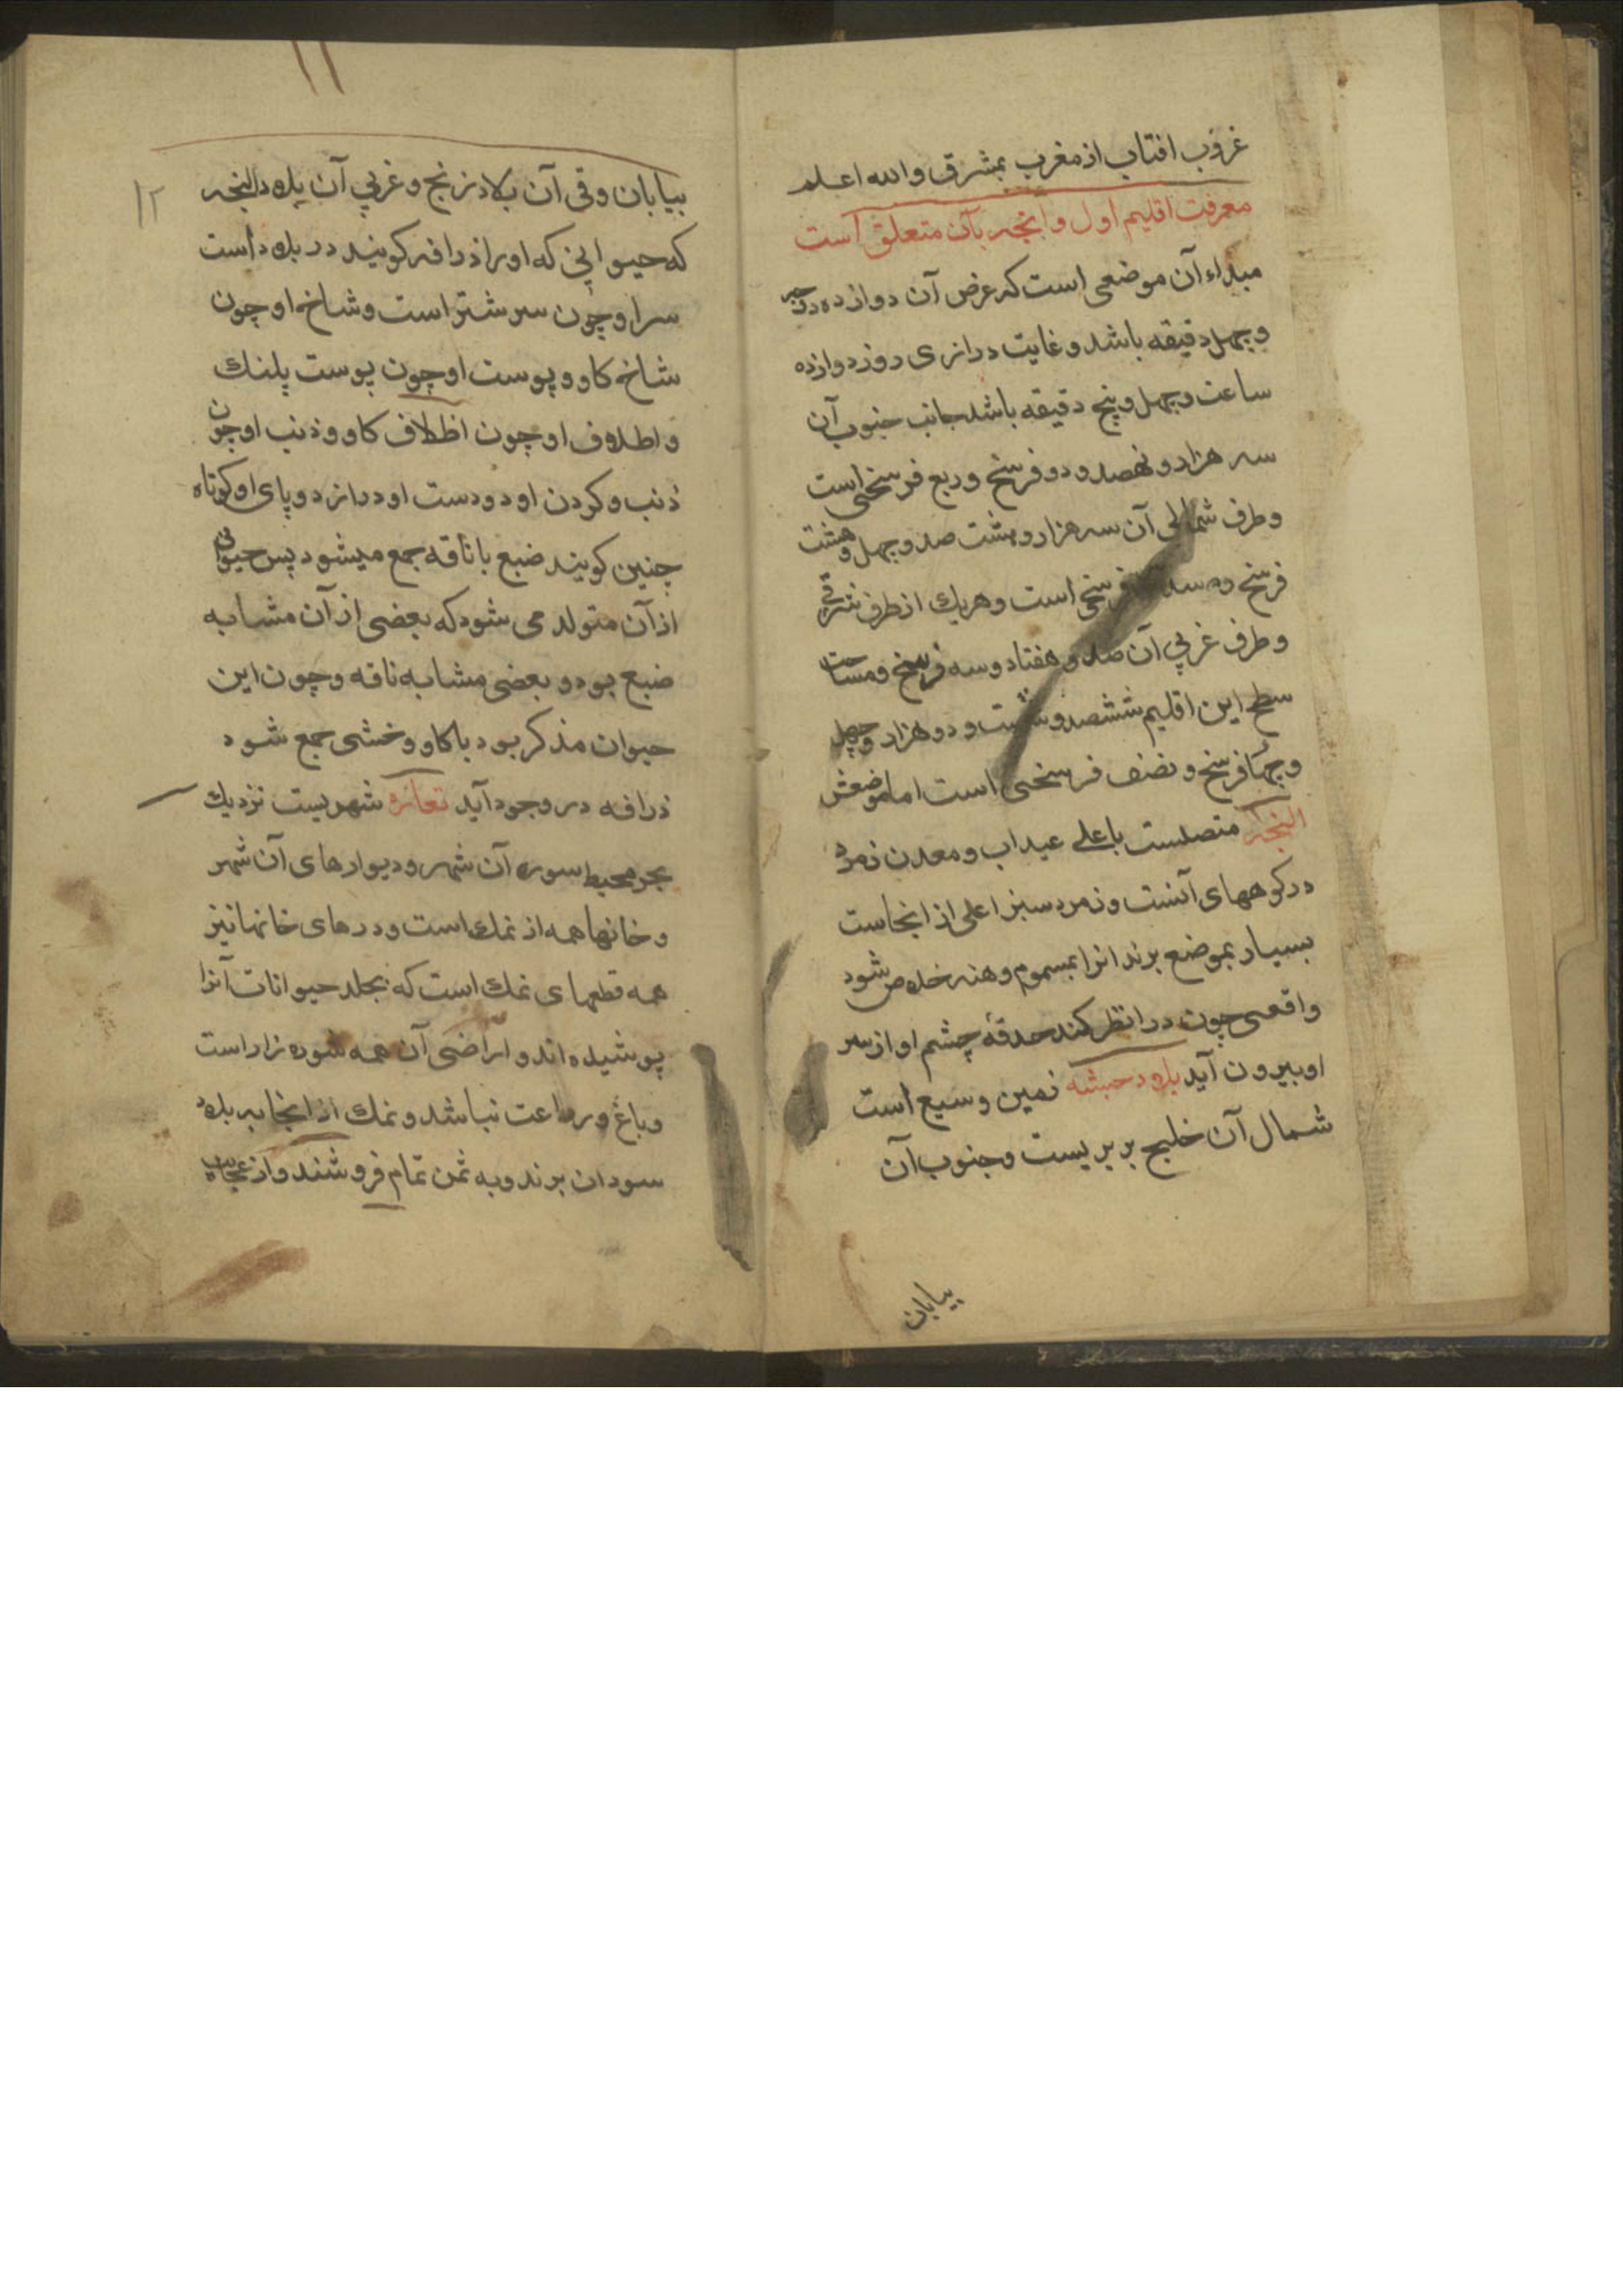 غروب افتاب از مغرب بمشرق والله اعلم
معرفت اقلیم اول و آنچه بآن متعلق است
مبداء آن موضعی است که عرض آن دوازده درجه
و چهل دقیقه باشد و غایت درازی روز دوازده
ساعت و چهل و پنج دقیقه باشد جانب جنوب آن
سه هزار و نهصد و دو فرسخ و ربع فرسخی است
و طرف شمالی آن سه هزار و هشت صد و چهل و هشت
فرسخ و فرسخی است و هریك از طرف شرقی
و طرف غربی آن صد و هفتاد و سه فرسخ و مساحت
سطح این اقلیم ششصد و شست و دو هزار و چهل
و چهار فرسخ و نصف فرسخی است اما موضعش
متصلست باعلی عیداب و معدن زمرد
در کوههای آنست و زمرد سبز اعلی از انجاست
بسیار بموضع برند انرا بمسموم وهند خلاص شود
و افعی چون درا نظر کند حدقهٔ چشم او از سر
او بیرون آید بلاد حبشه زمین وسیع است
شمال آن خلیج بربریست و جنوب آن
بیابان
۱۱
۱۲
بیابان و قی آن بلاد زنج و غربی آن بلاد البجه
که حیوانی که او را زرافه کویند در بلاد است
سر او چون سر شتر است و شاخ او چون
شاخ کاو و پوست او چون پوست پلنك
و اظلاف او چون اظلاف کاو و ذنب او چون
ذنب و کردن او و دو دست او دراز و دو پای او کوتاه
چنین کویند ضبع با ناقه جمع میشود پس حیوان
از آن متولد می شود که بعضی از آن مشابه
ضبع بود و بعضی مشابه ناقه و چون این
حیوان مذکر بود با کاو وحشی جمع شود
زرافه در وجود آید تغازه شهریست نزدیك
بحر محیط سور آن شهر و دیوارهای آن شهر
و خانها همه از نمك است و درهای خانها نیز
همه قطعهای نمك است که بجلد حیوانات آنرا
پوشیده اند و اراضی آن همه شوره زار است
و باغ و زراعت نباشد و نمك از انجا به بلاد
سودان برند و به ثمن تمام فروشند و از عجایب